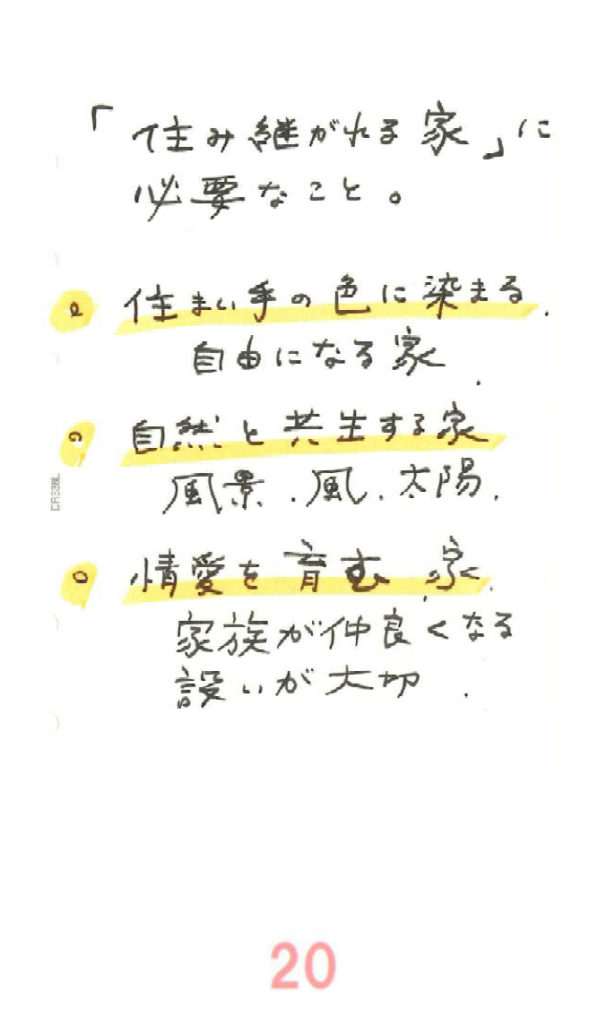 「住み継がれる家」に
必要なこと。
○ 住まい手の色に染まる.
自由になる家.
○ 自然と共生する家
風景.風.太陽.
○ 情愛を育む家.
家族が仲良くなる
設いが大切.
20